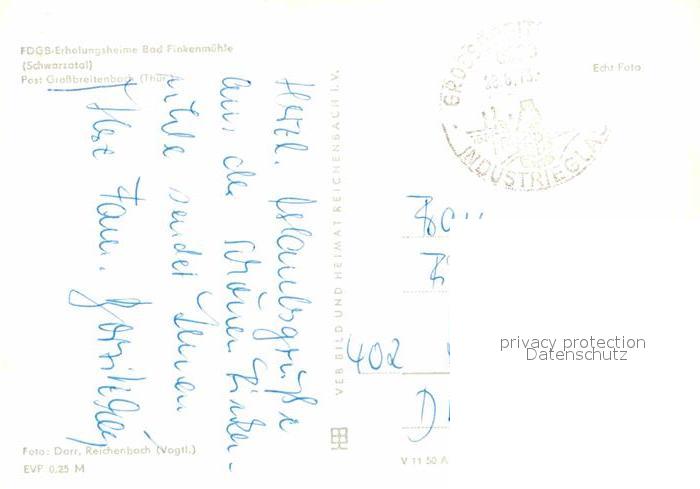 FDGB-Erholungsheime Bad Finkenmühle
(Schwarzatal)
Post Großbreitenbach (Thür
Echt Foto
INDUSTRIEGLA
Herzl. Urlaubsgrüße
aus der schönen Finken-
mühle sendet Ihnen
Fam.
VEB BILD UND HEIMAT REICHENBACH I. V.
402
D
privacy protection
Datenschutz
Foto: Darr, Reichenbach (Vogtl.)
EVP 0,25 M
V 11 50 A